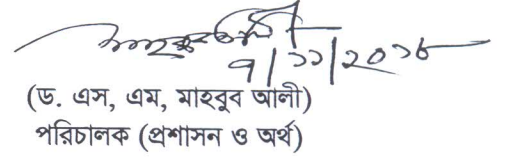 ৭/১১/২০১৮
(ড. এস, এম, মাহবুব আলী)
পরিচালক (প্রশাসন ও অর্থ)